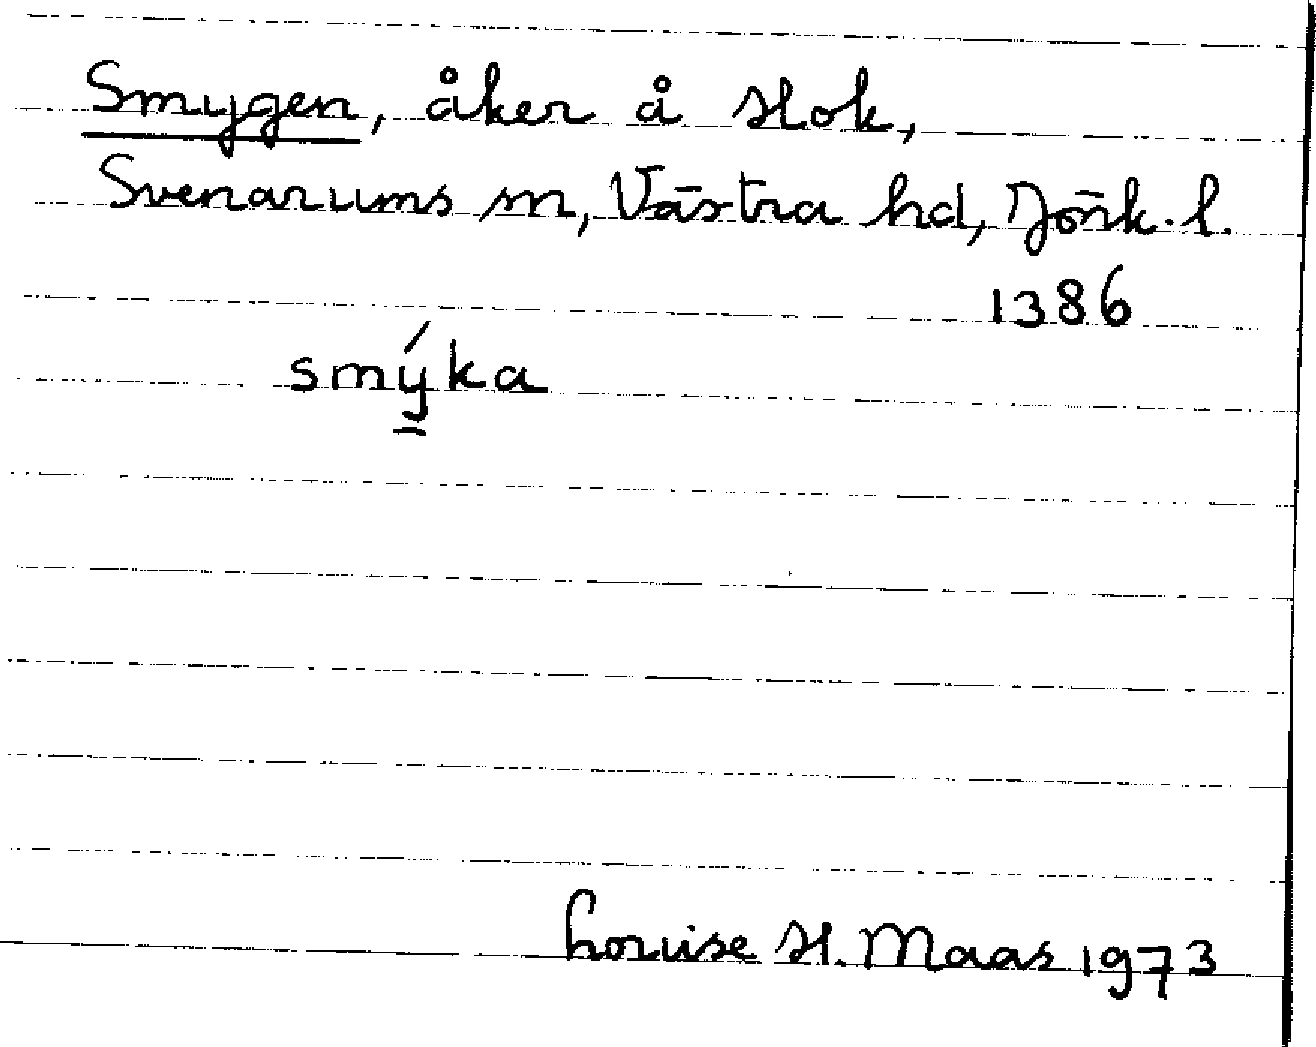 Smygen, åker å Hok,
Svenarums sn, Västra hd, Jönk. l.
1386
smýka
Louise H. Maas 1973